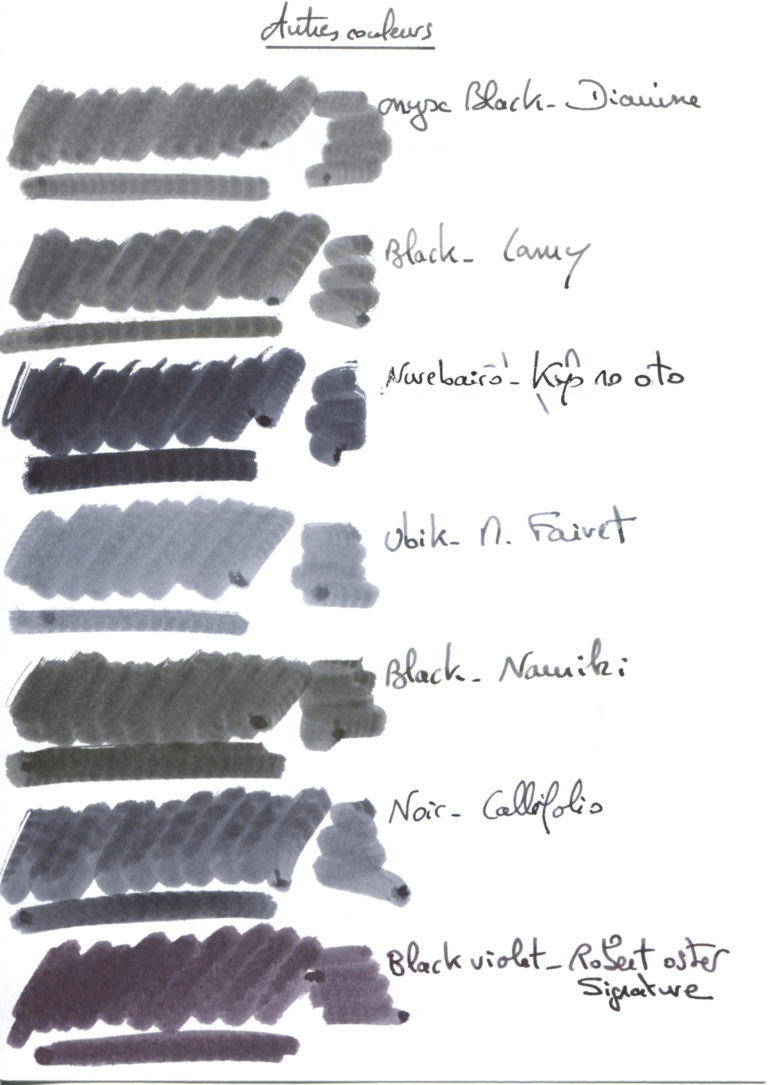 Autres couleurs
onyx Black - Diamine
Black - Lamy
Nurebairo - Kyo no oto
Ubik - N. Faivet
Black - Namiki
Noir - Callifolio
Black violet - Robert oster
Signature